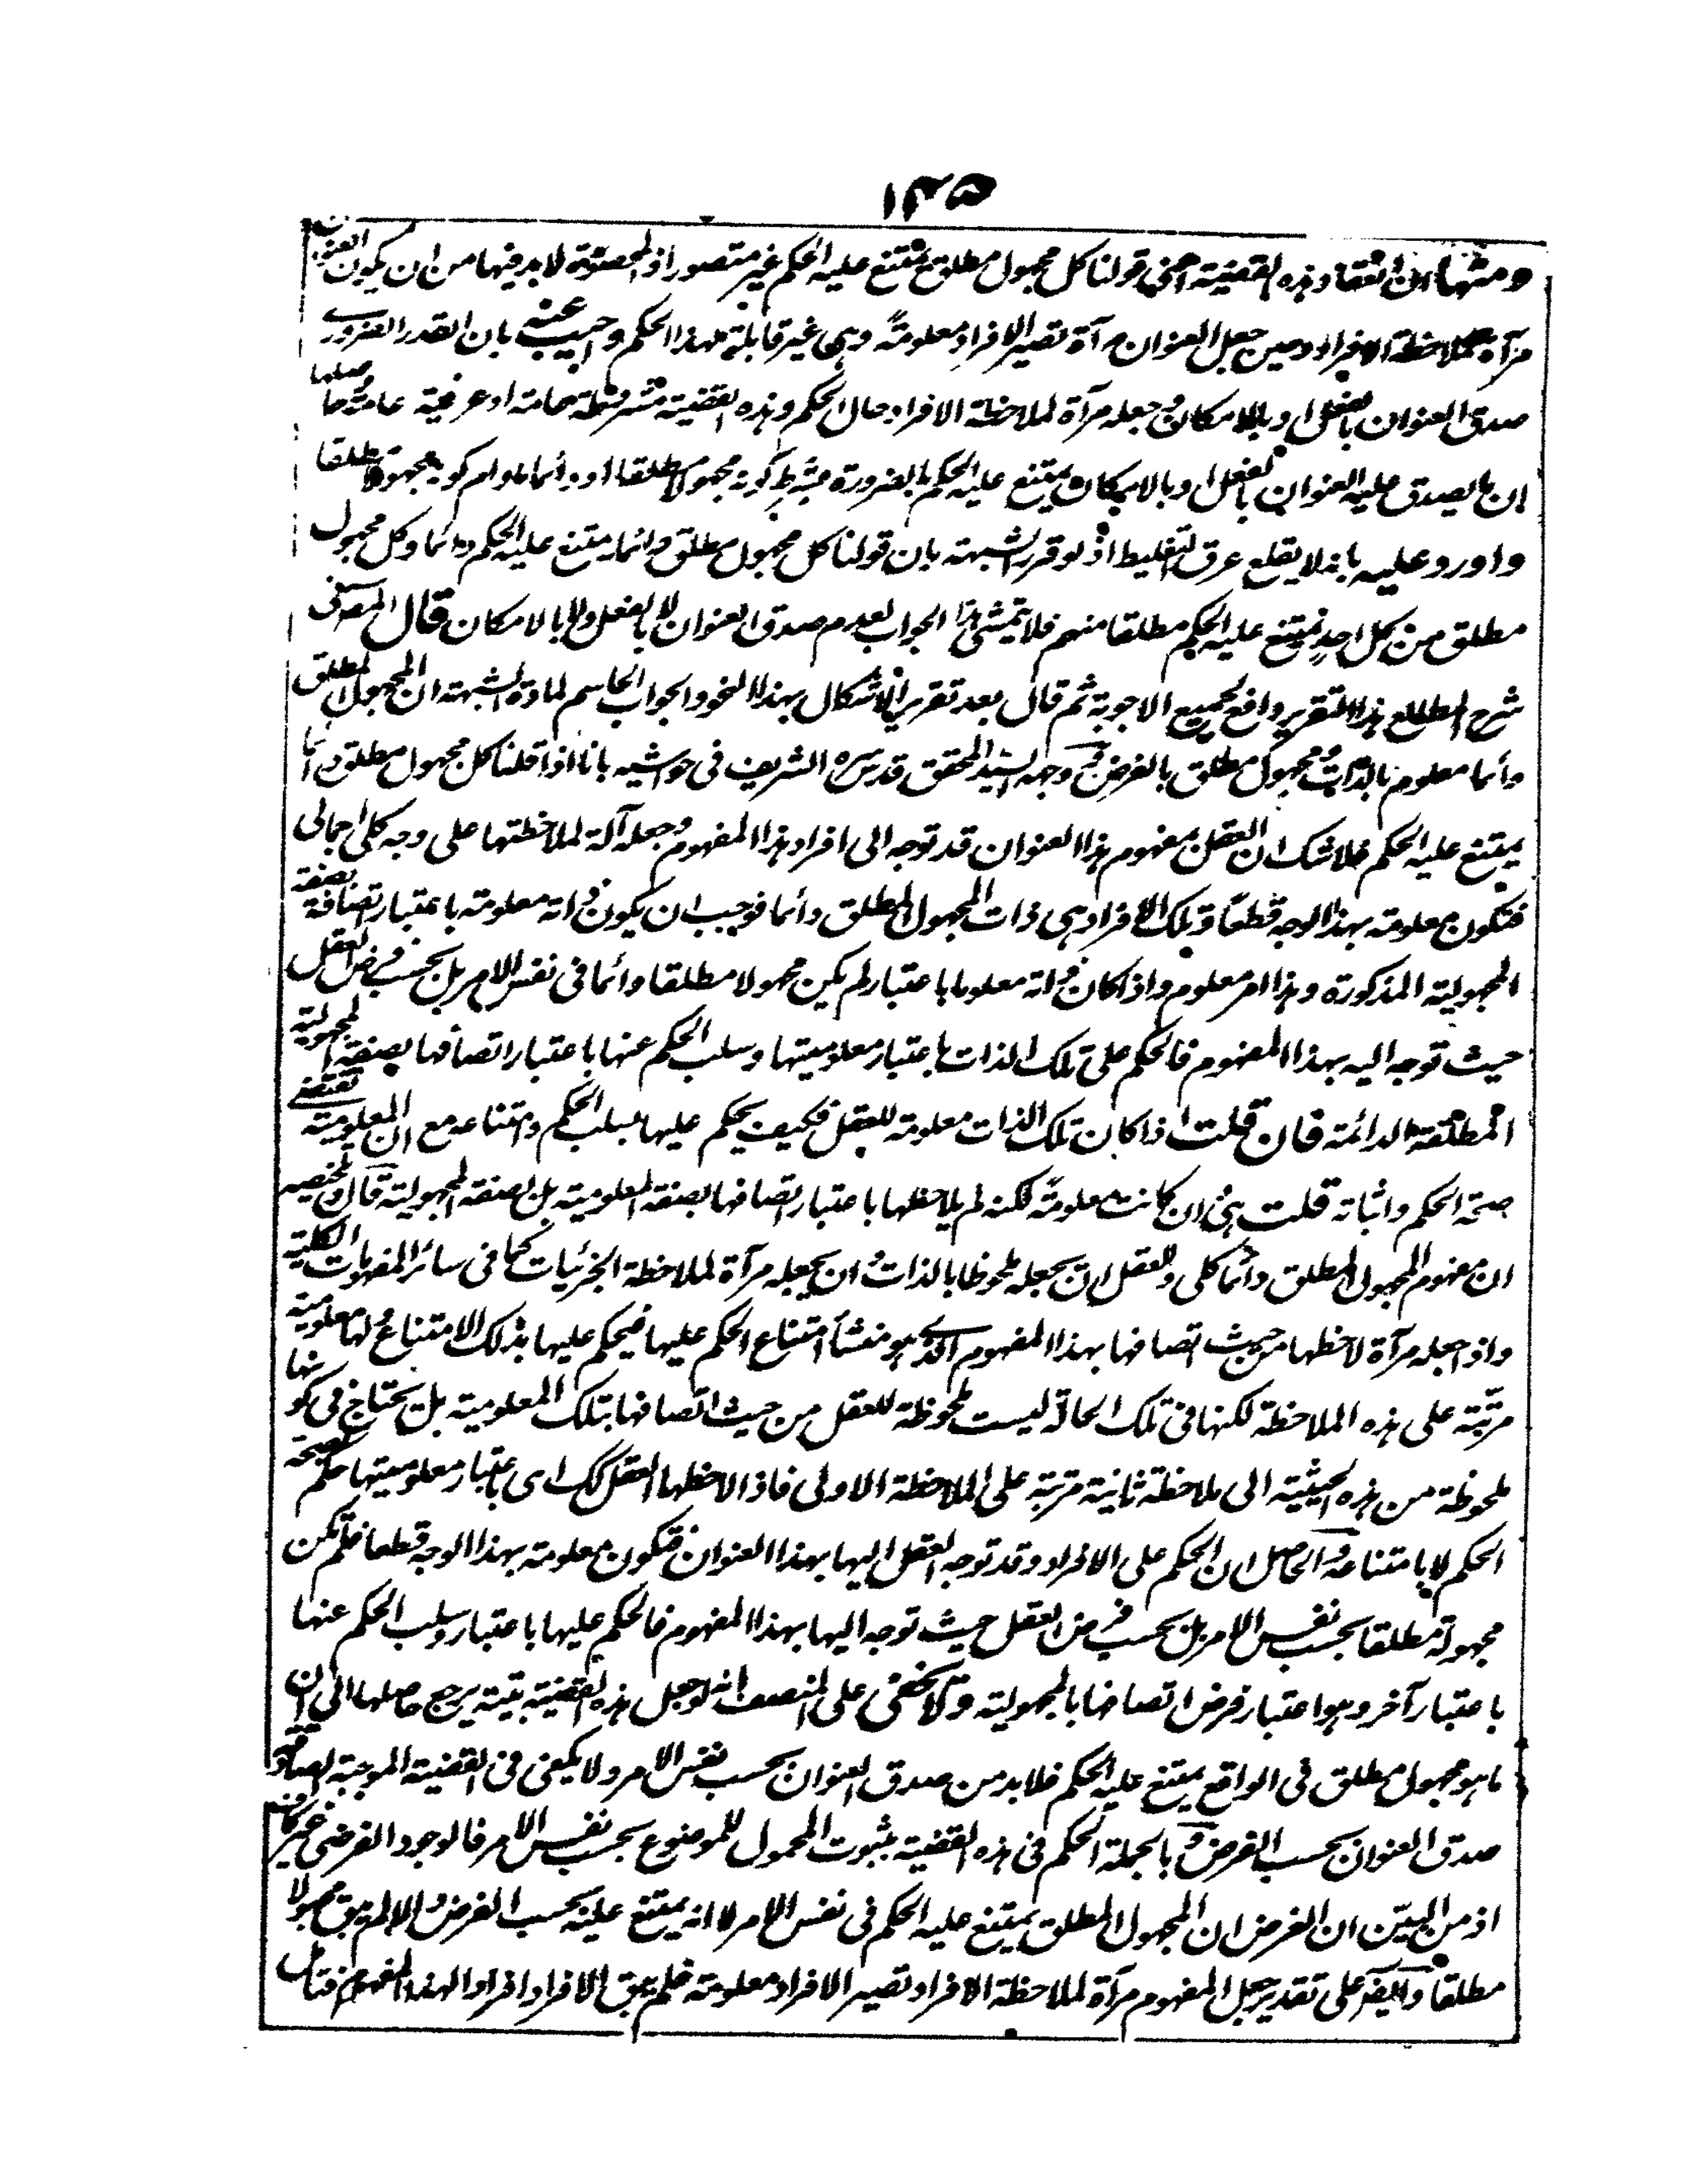 ١٣٥
ومنها ان انعقاد هذه القضية اعنى قولنا كل مجهول مطلق يمتنع عليه الحكم غير متصور اذ المحصورة لابد فيها من ان يكون العنوان
مرآة لملاحظة الافراد وحين جعل العنوان مرآة تصير الافراد معلومة وهى غير قابلة لهذا الحكم واجيب عنه بان القدر الضرورے
صدق العنوان بالفعل او بالامكان وجعله مرآة لملاحظة الافراد حال الحكم وهذه القضية مشروطة عامة او عرفية عامة حاصلها
ان ما يصدق عليه العنوان بالفعل او بالامكان يمتنع عليه الحكم بالضرورة بشرط كونه مجهولا مطلقا او دائما مادام كونه مجهولا مطلقا
واورد عليه بانه لا يقلع عرق التغليط اذ لو قرر الشبهة بان قولنا كل مجهول مطلق دائما يمتنع عليه الحكم دائما وكل مجهول
مطلق من كل احد يمتنع عليه الحكم مطلقا منهم فلا يتمشى هذا الجواب لعدم صدق العنوان لا بالفعل ولا بالامكان قال المص فى
شرح المطالع هذا التقرير دافع لجميع الاجوبة ثم قال بعد تقرير الاشكال بهذا النحو والجواب الحاسم لمادة الشبهة ان المجهول المطلق
دائما معلوم بالذات ومجهول مطلق بالفرض ووجهه السيد المحقق قدس سره الشريف فى حواشيه بانا اذا قلنا كل مجهول مطلق دائما
يمتنع عليه الحكم فلا شك ان العقل بمفهوم هذا العنوان قد توجه الى افراد هذا المفهوم وجعله آلة لملاحظتها على وجه كلى اجمالى
فتكون معلومة بهذا الوجه قطعا وتلك الافراد هى ذات المجهول المطلق دائما فوجب ان يكون ذاته معلومة باعتبار اتصافه بصفة
المجهولية المذكورة وهذا امر معلوم واذا كان ذاته معلوما باعتبار لم يكن مجهولا مطلقا دائما فى نفس الامر بل بحسب فرض العقل
حيث توجه اليه بهذا المفهوم فالحكم على تلك الذات باعتبار معلوميتها وسلب الحكم عنها باعتبار اتصافها بصفة المجهولية
المطلقة الدائمة فان قلت اذا كان تلك الذات معلومة للعقل فكيف يحكم عليها بسلب الحكم وامتناعه مع ان المعلومية تقتضے
صحة الحكم واثباته قلت هى وان كانت معلومة لكنه لم يلاحظها باعتبار اتصافها بصفة المعلومية بل بصفة المجهولية قال وتلخيصه
ان مفهوم المجهول المطلق دائما كلى وللعقل ان يجعله ملحوظا بالذات وان يجعله مرآة لملاحظة الجزئيات كما فى سائر المفهومات الكلية
واذا جعله مرآة لاحظها من حيث اتصافها بهذا المفهوم الذے هو منشأ امتناع الحكم عليها فيحكم عليها بذلك الامتناع ولها معلومية
مرتبة على هذه الملاحظة لكنها فى تلك الحالة ليست ملحوظة للعقل من حيث اتصافها بتلك المعلومية بل يحتاج فى كونها
ملحوظة من هذه الحيثية الى ملاحظة ثانية مرتبة على الملاحظة الاولى فاذا لاحظها العقل كك اى باعتبار معلوميتها حكم بصحة
الحكم لا بامتناعه والحاصل ان الحكم على الافراد وقد توجه العقل اليها بهذا العنوان فتكون معلومة بهذا الوجه قطعا فلم تكن
مجهولة مطلقا بحسب نفس الامر بل بحسب فرض العقل حيث توجه اليها بهذا المفهوم فالحكم عليها باعتبار وسلب الحكم عنها
باعتبار آخر وهو اعتبار فرض اتصافها بالمجهولية ولا يخفى على المنصف انه لو جعل هذه القضية بتية يرجع حاصلها الى ان
ما هو مجهول مطلق فى الواقع يمتنع عليه الحكم فلابد من صدق العنوان بحسب نفس الامر ولا يكفى فى القضية الموجبة الصادقة
صدق العنوان بحسب الفرض وبالجملة الحكم فى هذه القضية بثبوت المحمول للموضوع بحسب نفس الامر فالوجود الفرضى غير كاف
اذ من البيّن ان الغرض ان المجهول المطلق يمتنع عليه الحكم فى نفس الامر لا انه يمتنع عليه بحسب الفرض والا لم يبق مجهولا
مطلقا وايضا على تقدير جعل المفهوم مرآة لملاحظة الافراد تصير الافراد معلومة فلم يبق الافراد افرادا لهذا المفهوم فتامل